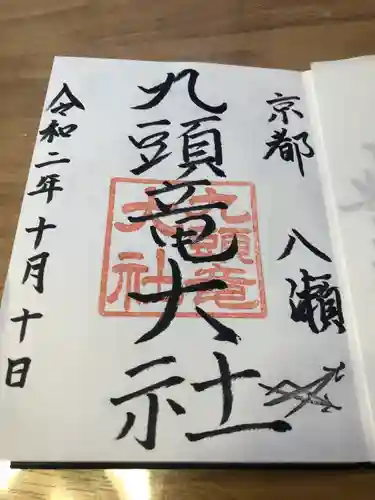 京都 八瀬
九頭竜大社
九頭竜
大社
令和二年十月十日